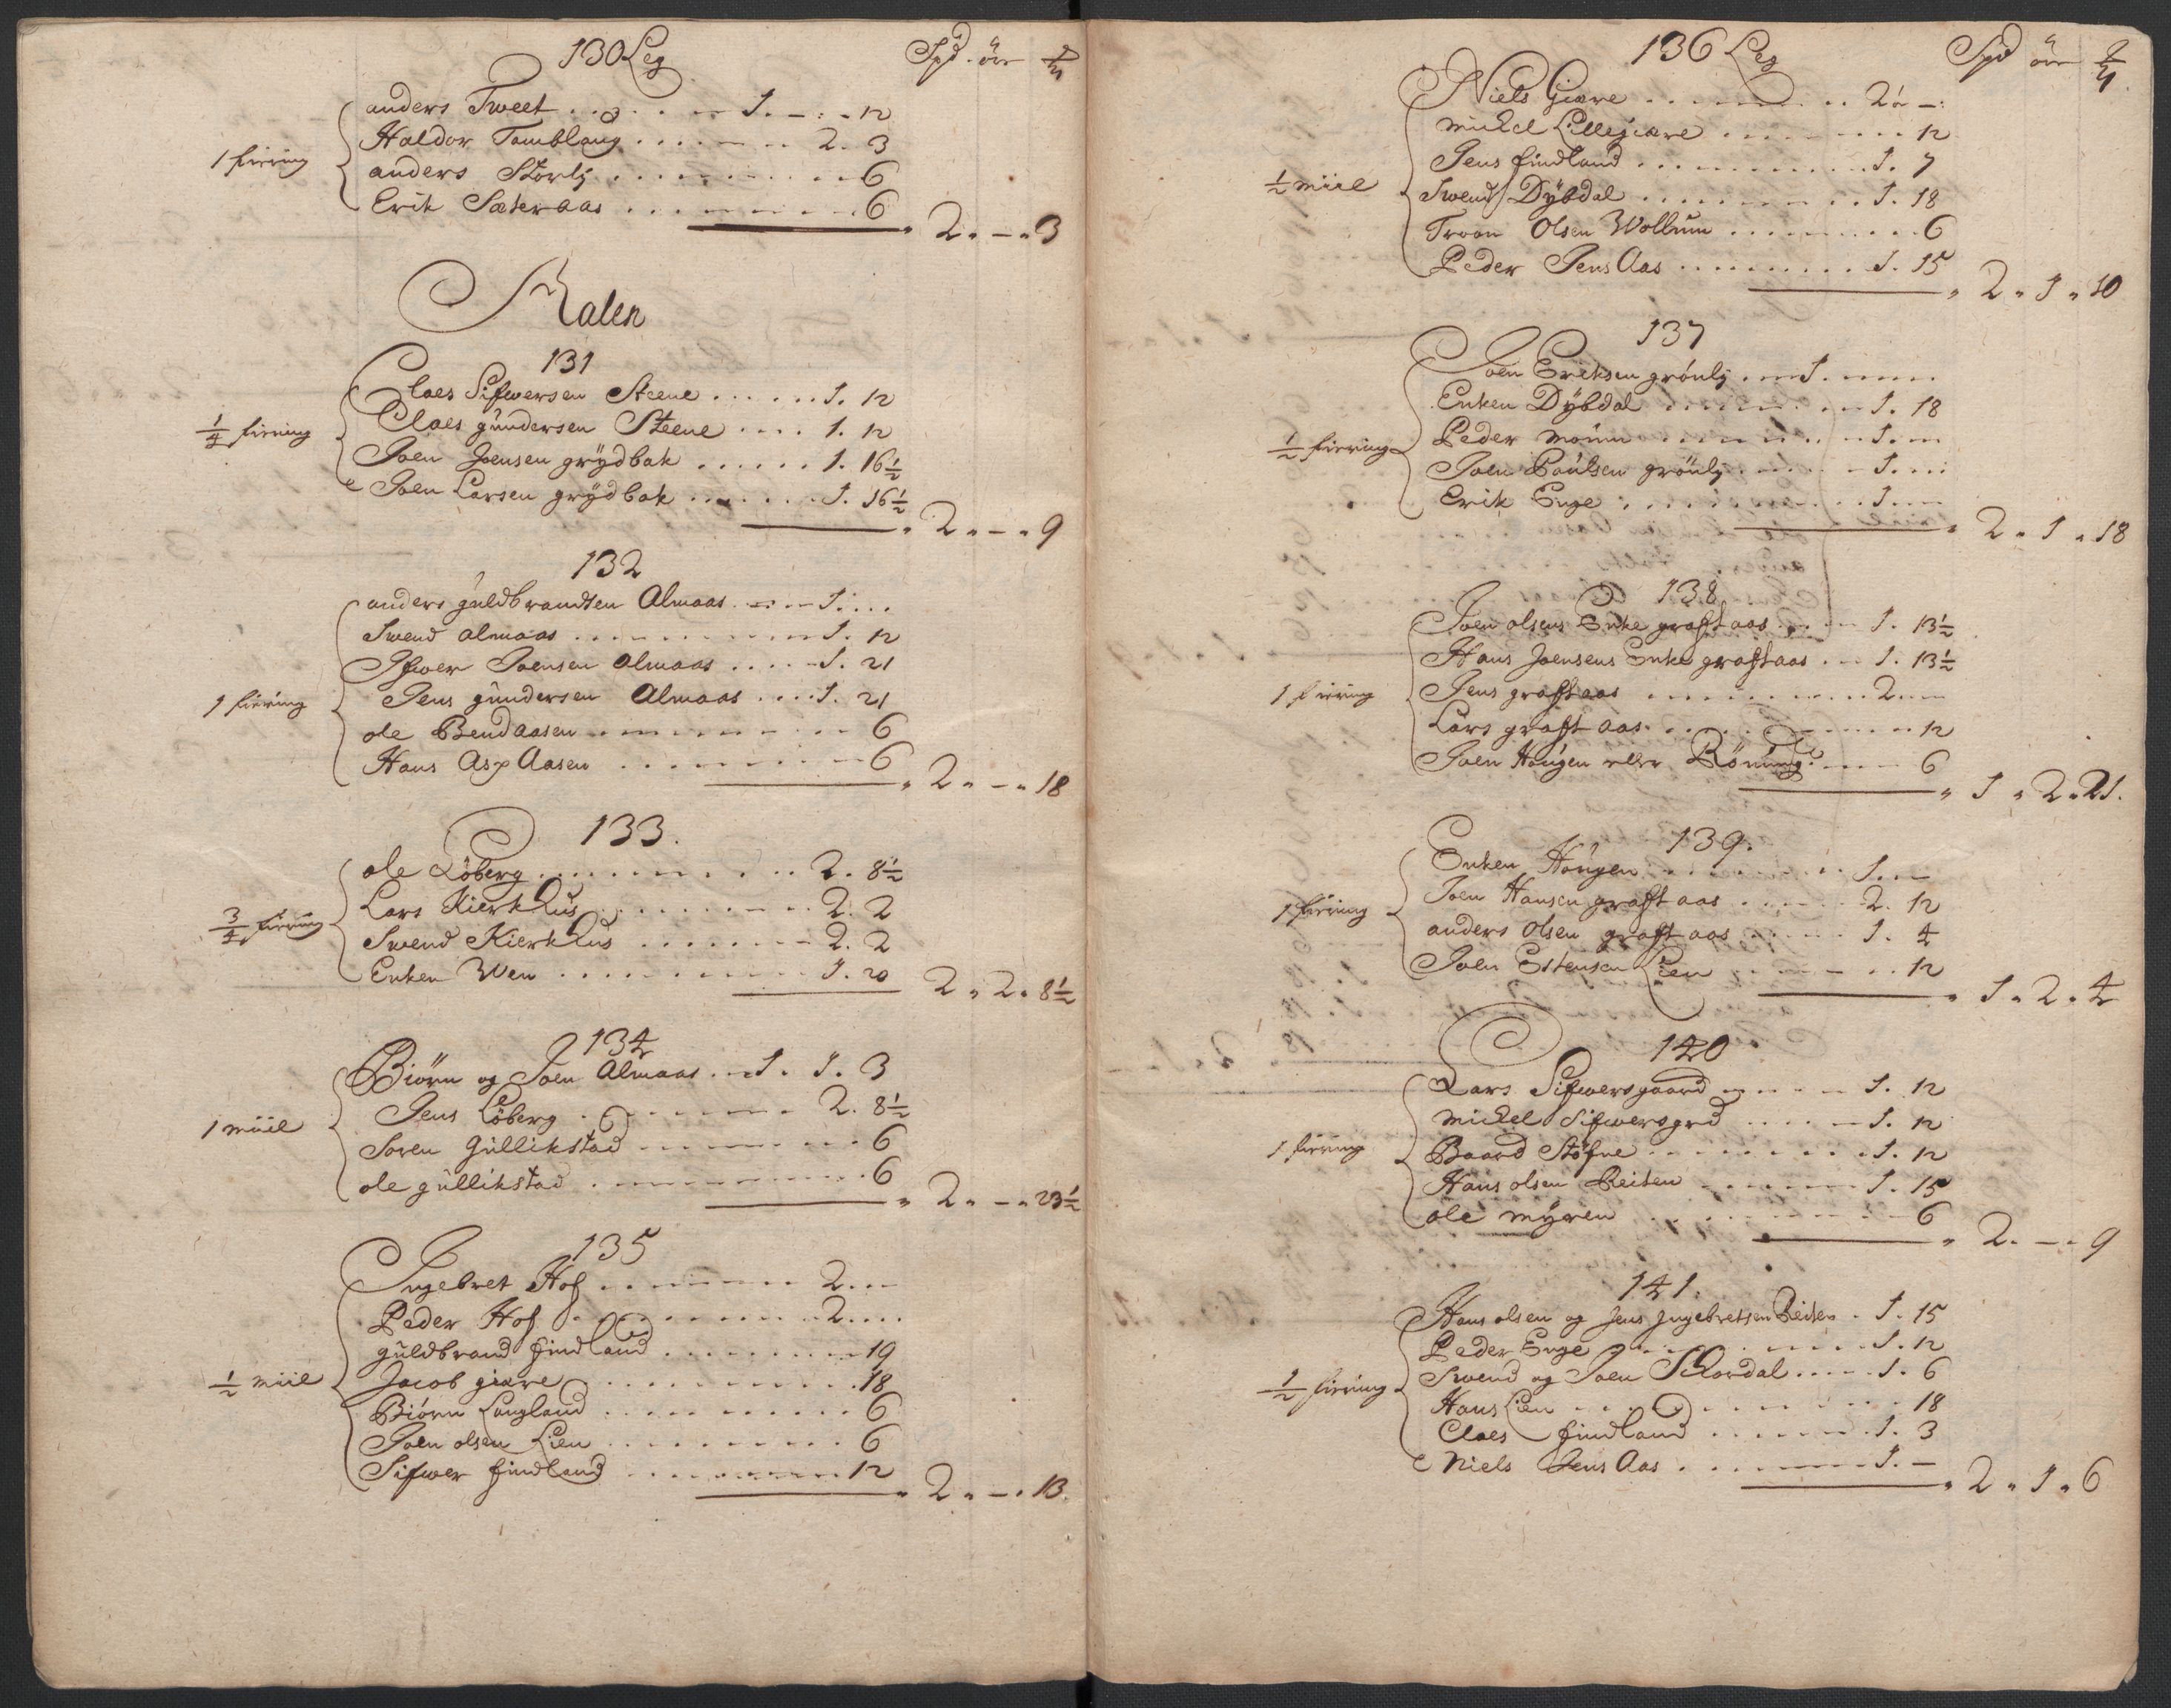 130 Leg Spd. ör
anders Tweet . . . . . 1. – . – 12
Haldor Tamblaug . . . . . 2. 3
1 fiering
anders Störly . . . . . 6
Erik Sæteraas . . . . . 6
2. – . 3
Aalen
131
Claes Sifwersen Steene . . . . . 1. 12
1/4 fiering
Claes gundersen Steene . . . . 1. 12
Joen Joensen grydbak . . . . . 1. 16½
Joen Larsen grydbak . . . . . 1. 16½
2. – . 9
132
anders guldbrandsen Almaas . . . 1. . .
Swend almaas . . . . . 1. 12
Ifwer Joensen almaas . . . . . 1. 21
1 fiering
Jens gundersen Almaas . . . . 1. 21
ole Bendaasen . . . . . 6
Hans Asp Aasen . . . . . 6
2. – . 18
133.
ole Löberg . . . . . 2. 8½
Lars Kierkhus . . . . . 2. 2
3/4 fiering
Swend Kierkhus . . . . . 2. 2
Enken Wen . . . . . 1. 20
2. 2. 8½
134
Biörn og Joen Almaas . . 1. 1. 3
Jens Löberg . . . . . 2. 8½
1 miil
Soren Gullikstad . . . . . 6
ole gullikstad . . . . . 6
2. – . 23½
135
Ingebret Hof . . . . . 2. –
Peder Hof . . . . . 2. . .
guldbrand findland . . . . . 19
½ miil
Jacob giære . . . . . 18
Biörn Langland . . . . . 6
Joen olsen Lien . . . . . 6
Sifwer findland . . . . . 12
2. – . 13.
136 Leg Spd ör
Niels Giære . . . . . 2. – .
Michel Lillegiære . . . . . 12
Jens findland . . . . . 1. 7
½ miil
Swend Dybdal . . . . . 1. 18
Troon Olsen Wollum . . . . . 6
Peder Jens Aas . . . . . 1. 15
2. 1. 10
137
Joen Eriksen grönly . . . 1. . .
Enken Dybdal . . . . . 1. 18
½ fiering
Peder moum . . . . . 1. –
Joen Paulsen grönly . . . . . 1. . .
Erik Enge . . . . . 1. –
2. 1. 18
138
Joen olsens Enke graftaas . . . 1. 13½
Hans Joensens Enke graftaas . . 1. 13½
1 fiering
Jens graftaas . . . . . 2. –
Lars graft aas . . . . . 12
Joen Haugen eller Rönning . . . 6
1. 2. 21.
139.
Enken Haugen . . . . . 1. –
Joen Hansen graft aas . . . . . 2. 12
1 fiering
anders olsen graft aas . . . . . 1. 4
Joen Estensen Lien . . . . . 12
1. 2. 4
140
Lars Sifwersgaard . . . . . 1. 12
michel Sifwersgrd . . . . . 1. 12
1 fiering
Baard Stöfne . . . . . 1. 12
Hans olsen Reiten . . . . . 1. 15
ole myren . . . . . 6
2. – . 9
141.
Hans olsen og Jens Ingebretsen Reiten . 1. 15
Peder Enge . . . . . 1. 12
½ fiering
Swend og Joen Schordal . . . . . 1. 6
Hans Lien . . . . . 18
Claes findland . . . . . 1. 3
Niels Jens Aas . . . . . 1. –
2. 1. 6